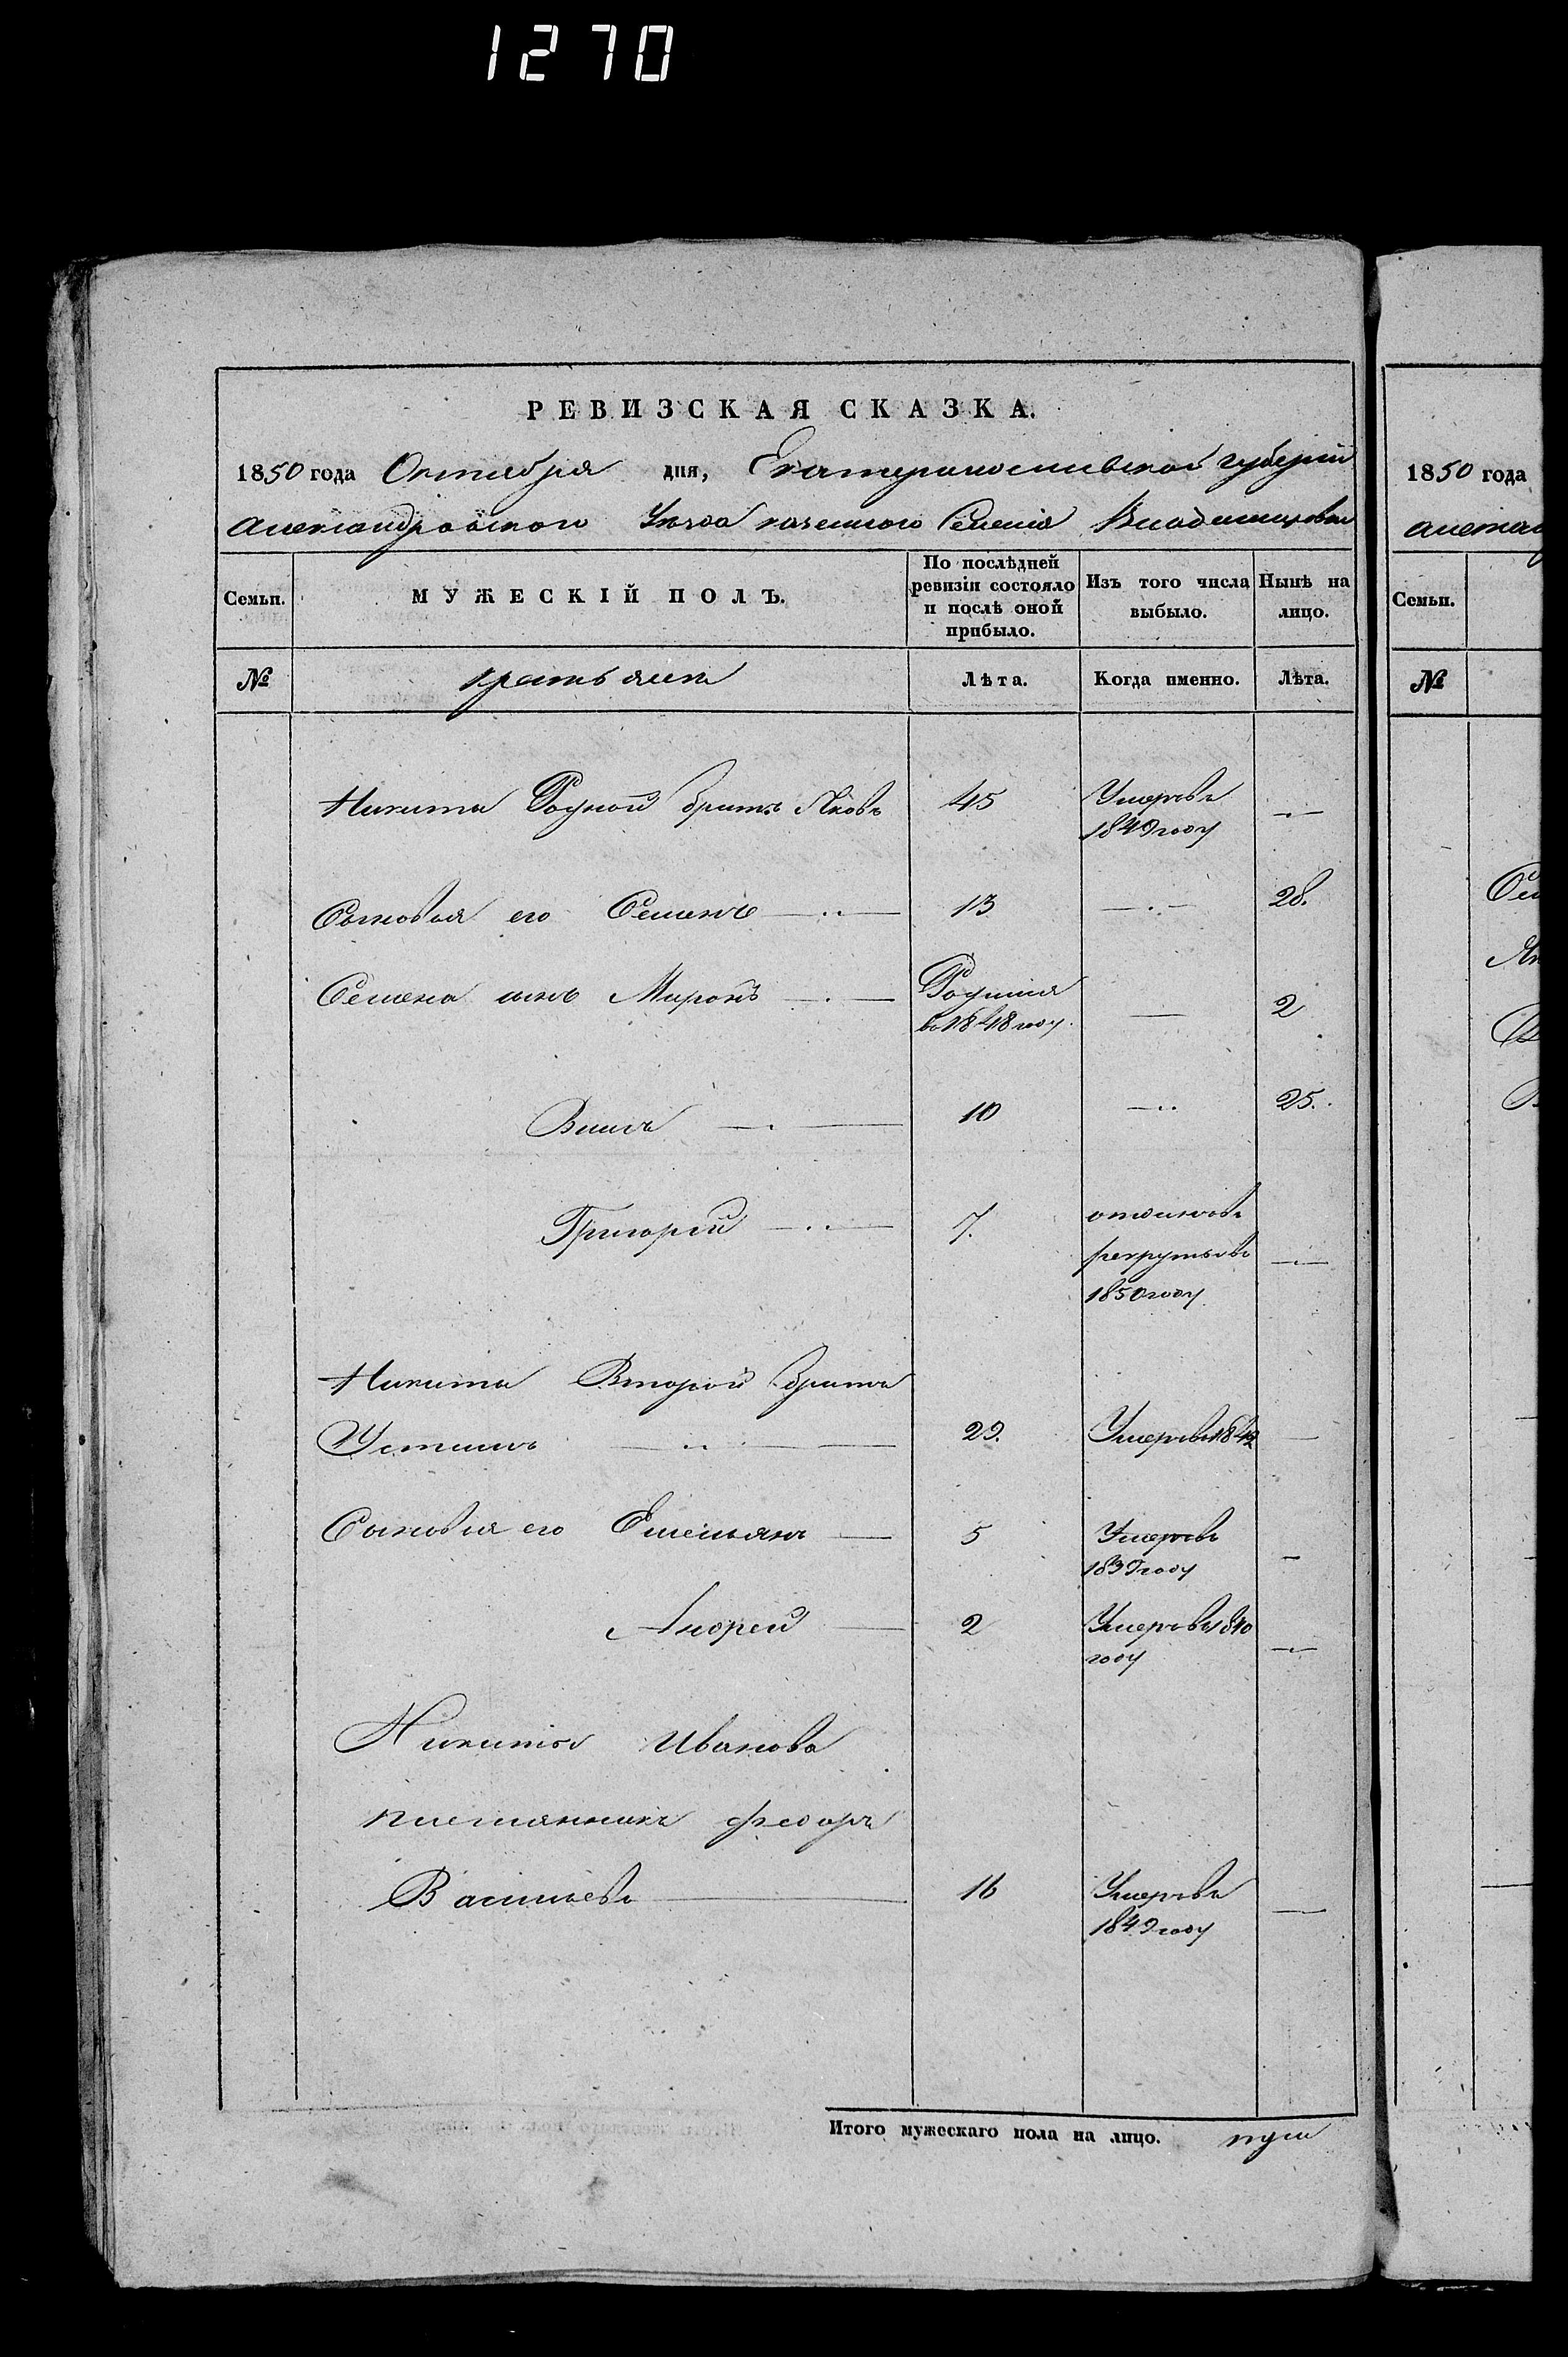 1270
РЕВИЗСКАЯ СКАЗКА.
1850 года Октября дня, Екатеринославской губерніи
Александровского Уезда казенного Селенія Владимировки
Семьи.
МУЖЕСКІЙ ПОЛЪ.
По послѣдней ревизіи состояло и послѣ оной прибыло.
Изъ того числа выбыло.
Нынѣ на лицо.
№
Лѣта.
Когда именно.
Лѣта.
Никиты Родной братъ Яковъ 45 Умеръ въ 1849 году
Сыновья его Семенъ 13 28.
Семена сынъ Миронъ Родился въ 1848 году. 2
10 25.
Григорій 7. рекруты въ 1850 году
Никиты Второй братъ
Устинъ 29. Умеръ въ 1842
Сыновья его Емельянъ 5 Умеръ въ 1839 году
Андрей 2 Умеръ въ 1840 году
Никиты Иванова
племянникъ Федоръ
Васильевъ 16 Умеръ въ 1849 году
Итого мужескаго пола на лицо.
1850 года
Семьи.
№